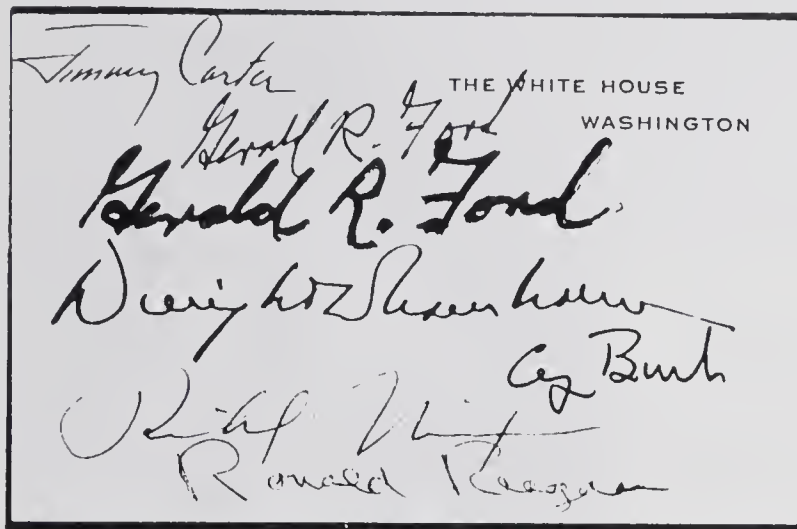 Jimmy Carter
THE WHITE HOUSE
WASHINGTON
Gerald R. Ford
Gerald R. Ford
Dwight D Eisenhower
Cy Bush
Richard Nixon
Ronald Reagan